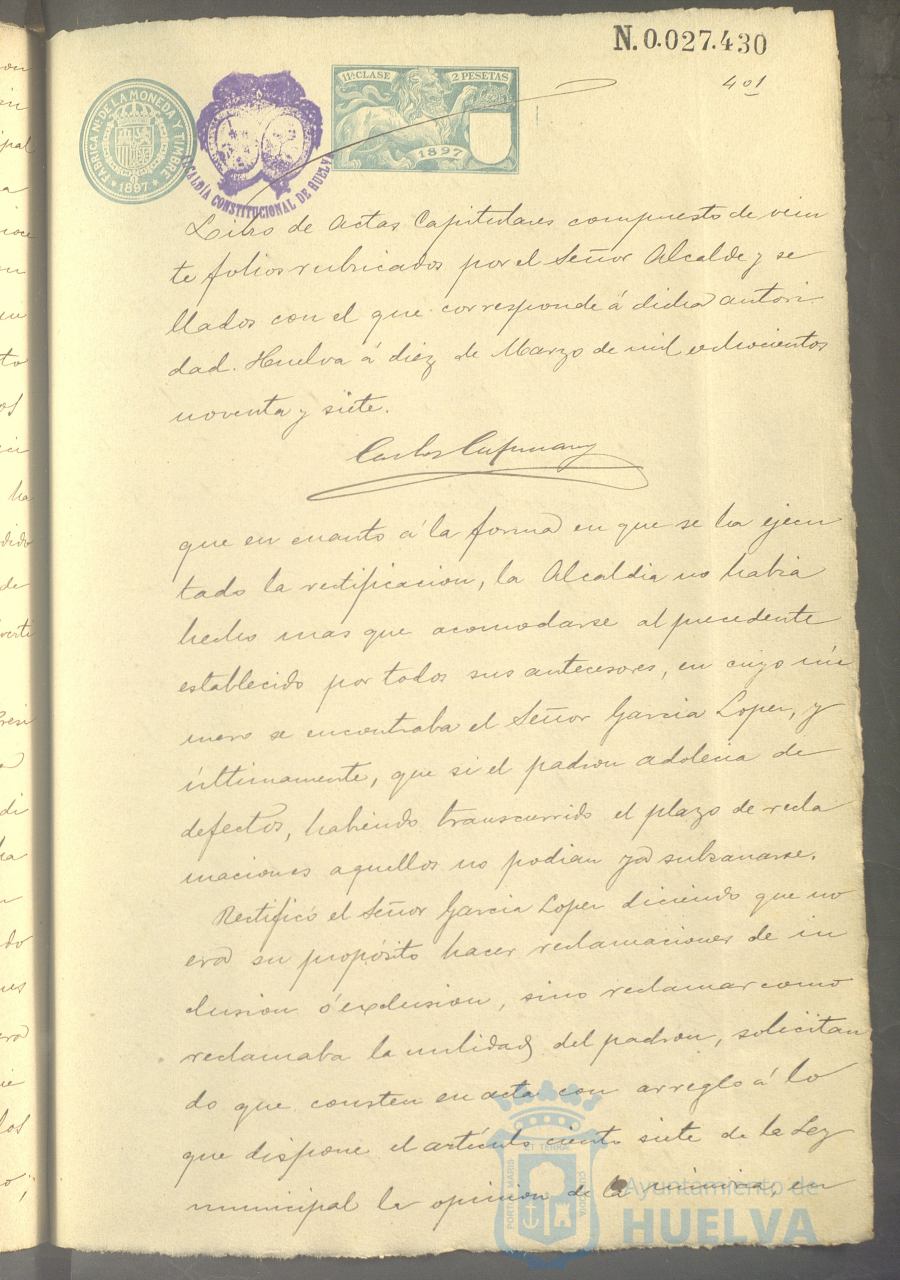 N. 0.027.430
401
FÁBRICA N. DE LA MONEDA Y TIMBRE
1897
ALCALDÍA CONSTITUCIONAL DE HUELVA
11ª CLASE 2 PESETAS
1897
Libro de Actas Capitulares compuesto de vein
te folios rubricados por el Señor Alcalde y se
llados con el que corresponde á dicha autori
dad. Huelva á diez de Marzo de mil ochocientos
noventa y siete.
Carlos
que en cuanto á la forma en que se ha ejecu
tado la rectificacion, la Alcaldia no habia
hecho mas que acomodarse al precedente
establecido por todos sus antecesores, en cuyo nú
mero se encontraba el Señor Garcia Lopez, y
últimamente, que si el padron adolecia de
defectos, habiendo transcurrido el plazo de recla
maciones aquellos no podian ya subsanarse.
Rectificó el Señor Garcia Lopez diciendo que no
era su propósito hacer reclamaciones de in
clusion ó exclusion, sino reclamar como
reclamaba la nulidad del padron, solicitan
do que consten en acta con arreglo á lo
que dispone el artículo ciento siete de la Ley
municipal la opinion de la minoria, en
PORTUS MARIS ET TERRAE CUSTODIA
Ayuntamiento de
HUELVA